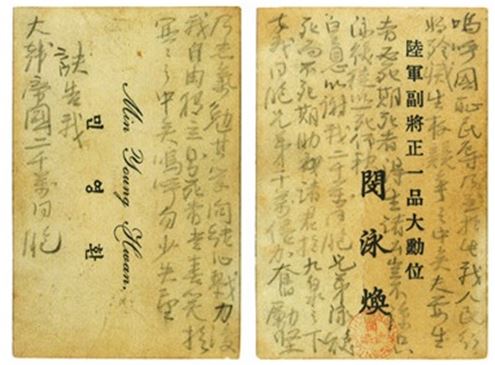 嗚呼國恥民辱乃至於此我人民行
將殄滅生存競爭之中矣夫要生
陸軍副將正一品大勳位
者必死期死者得生諸公豈不諒只
泳煥徒以一死仰報
閔泳煥
皇恩以謝我二千万同胞兄弟泳煥
死而不死期助諸君於九泉之下
幸我同胞兄弟千万倍加奮勵堅
乃志氣勉其學問結心戮力復
我自由獨立則死者當喜笑於
冥冥之中矣嗚呼勿少失望
Min Young Hwan.
민영환
訣告我
大韓帝國二千万同胞